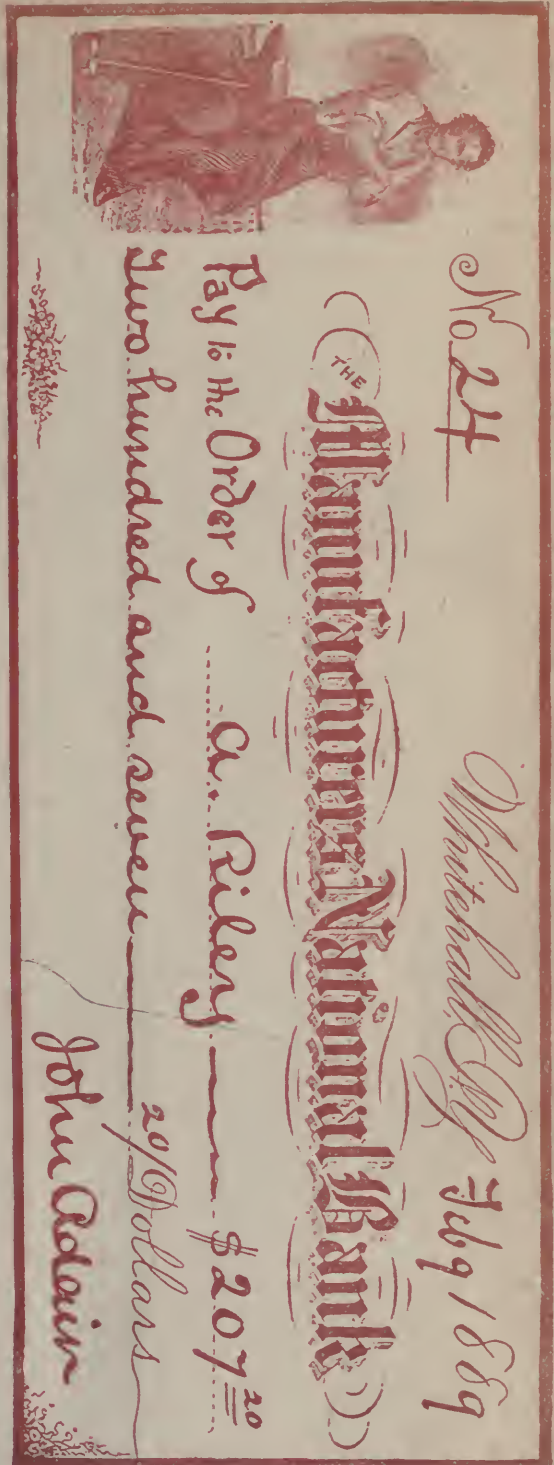 No. 24 Whitehall, N.Y. Feb 9 1889
THE Manufacturers National Bank
Pay to the Order of A. Riley $207 20
Two hundred and seven 20/ Dollars
John Adair